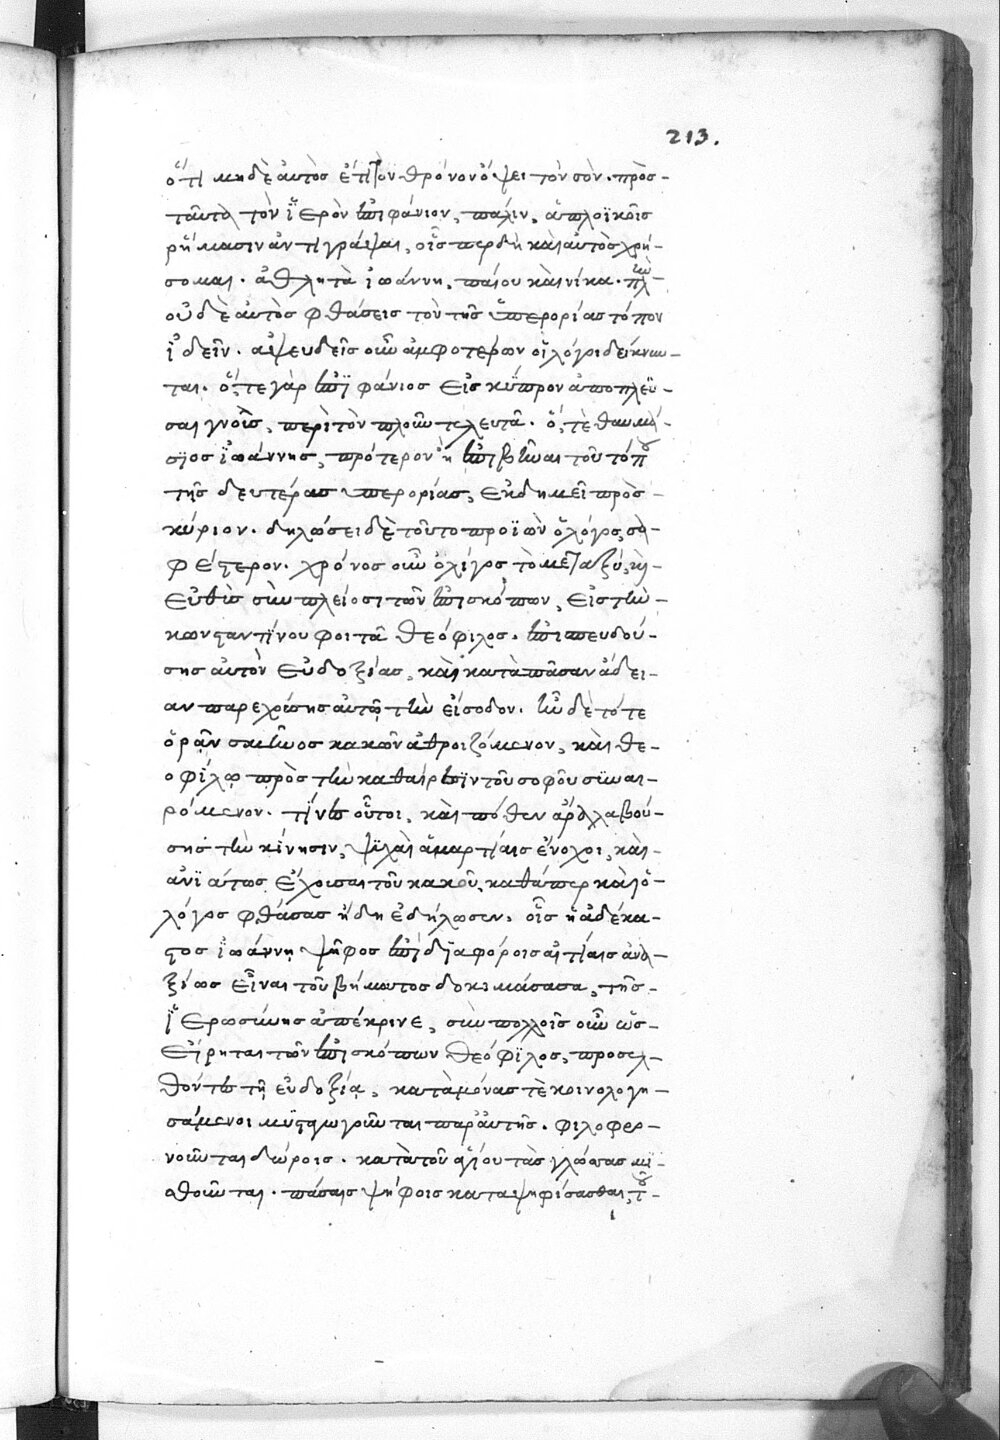 213.
ὅτι μηδὲ αὐτὸς ἔτι τὸν θρόνον ὄψει τὸν σὸν. πρὸς-
ταῦτα τὸν ἱερὸν ἐπιφάνιον, πάλιν, ἁπλοϊκοῖς
ῥήμασιν ἀντιγράψαι, οἷσπερ δὴ καὶ αὐτὸς χρή-
σομαι. ἀθλητὰ ἰωάννη, παίου καὶ νίκα. πλὴν
οὐδὲ αὐτὸς φθάσεις τὸν τῆς ὑπερορίας τόπον
ἰδεῖν. ἀψευδεῖς οὖν ἀμφοτέρων οἱ λόγοι δείκνυν-
ται. ὅ, τε γὰρ ἐπιφάνιος εἰς κύπρον ἀποπλεῦ-
σαι γνοὺς, περὶ τὸν πλοῦν τελευτᾶ. ὅ, τε θαυμά-
σιος ἰωάννης, πρότερον ἢ ἐπιβῆναι τοῦ τόπου
τῆς δευτέρας ὑπερορίας, ἐκδημεῖ πρὸς-
κύριον. δηλώσει δὲ τοῦτο προϊὼν ὁ λόγος, σα-
φέστερον. χρόνος οὖν ὀλίγος τὸ μεταξὺ, καὶ-
εὐθὺς σὺν πλείοσι τῶν ἐπισκόπων, εἰς τὴν-
κωνσταντίνου φοιτᾶ θεόφιλος. ἐπισπευδού-
σης αὐτὸν εὐδοξίας, καὶ κατὰ πᾶσαν ἄδει-
αν παρεχούσης αὐτῷ τὴν εἴσοδον. ἦν δὲ τότε
ὁρᾶν σμῆνος κακῶν ἀθροιζόμενον, καὶ θε-
οφίλῳ πρὸς τὴν καθαίρεσιν τοῦ σοφοῦ συναι-
ρόμενον. τίνες οὗτοι, καὶ πόθεν ἀναλαβού-
σης τὴν κίνησιν, ψιλαὶ ἁμαρτίαις ἔνοχοι, καὶ-
ἀνιάτως ἔχουσαι τοῦ κακοῦ, καθάπερ καὶ ὁ-
λόγος φθάσας ἤδη ἐδήλωσεν. οἷς ἡ ἀδέκα-
στος ἰωάννῃ ψῆφος ἐπὶ διαφόροις αἰτίαις ἀνα-
ξίως εἶναι τοῦ βήματος δοκιμάσασα, τῆς-
ἱερωσύνης ἀπέκρινε, σὺν πολλοῖς οὖν ὡς-
εἴρηται τῶν ἐπισκόπων θεόφιλος, προσελ-
θόντες τῇ εὐδοξίᾳ, καταμόνας τὲ κοινολογη-
σάμενοι μυσταγωγοῦνται παρ' αὐτῆς. φιλοφρο-
νοῦνται δώροις. κατὰ τοῦ ἁγίου τὰς γλώσσας μι-
σθοῦνται. πάσαις ψήφοις καταψηφίσασθαι, τοῦ-